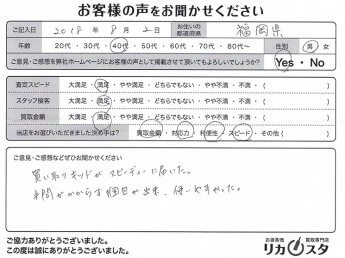 お客様の声をお聞かせください
ご記入日 2018年 8月 2日 お住いの都道府県 福岡県
年齢 20代・30代・40代・50代・60代・70代・80代〜 性別 男・女
ご意見・ご感想を弊社ホームページにお客様の声として掲載させて頂いてもよろしいでしょうか? Yes・No
査定スピード 大満足・満足・やや満足・どちらでもない・やや不満・不満・( )
スタッフ接客 大満足・満足・やや満足・どちらでもない・やや不満・不満・( )
買取金額 大満足・満足・やや満足・どちらでもない・やや不満・不満・( )
当店をお選びいただきました決め手は? 買取金額・対応力・利便性・スピード・その他( )
ご意見・ご感想などぜひお聞かせください
買い取りキットがスピーディーに届いた。
手間がかからず梱包が出来、使いやすかった。
ご協力ありがとうございました。
この度は誠にありがとうございました。
お酒高価買取専門店
リカスタ